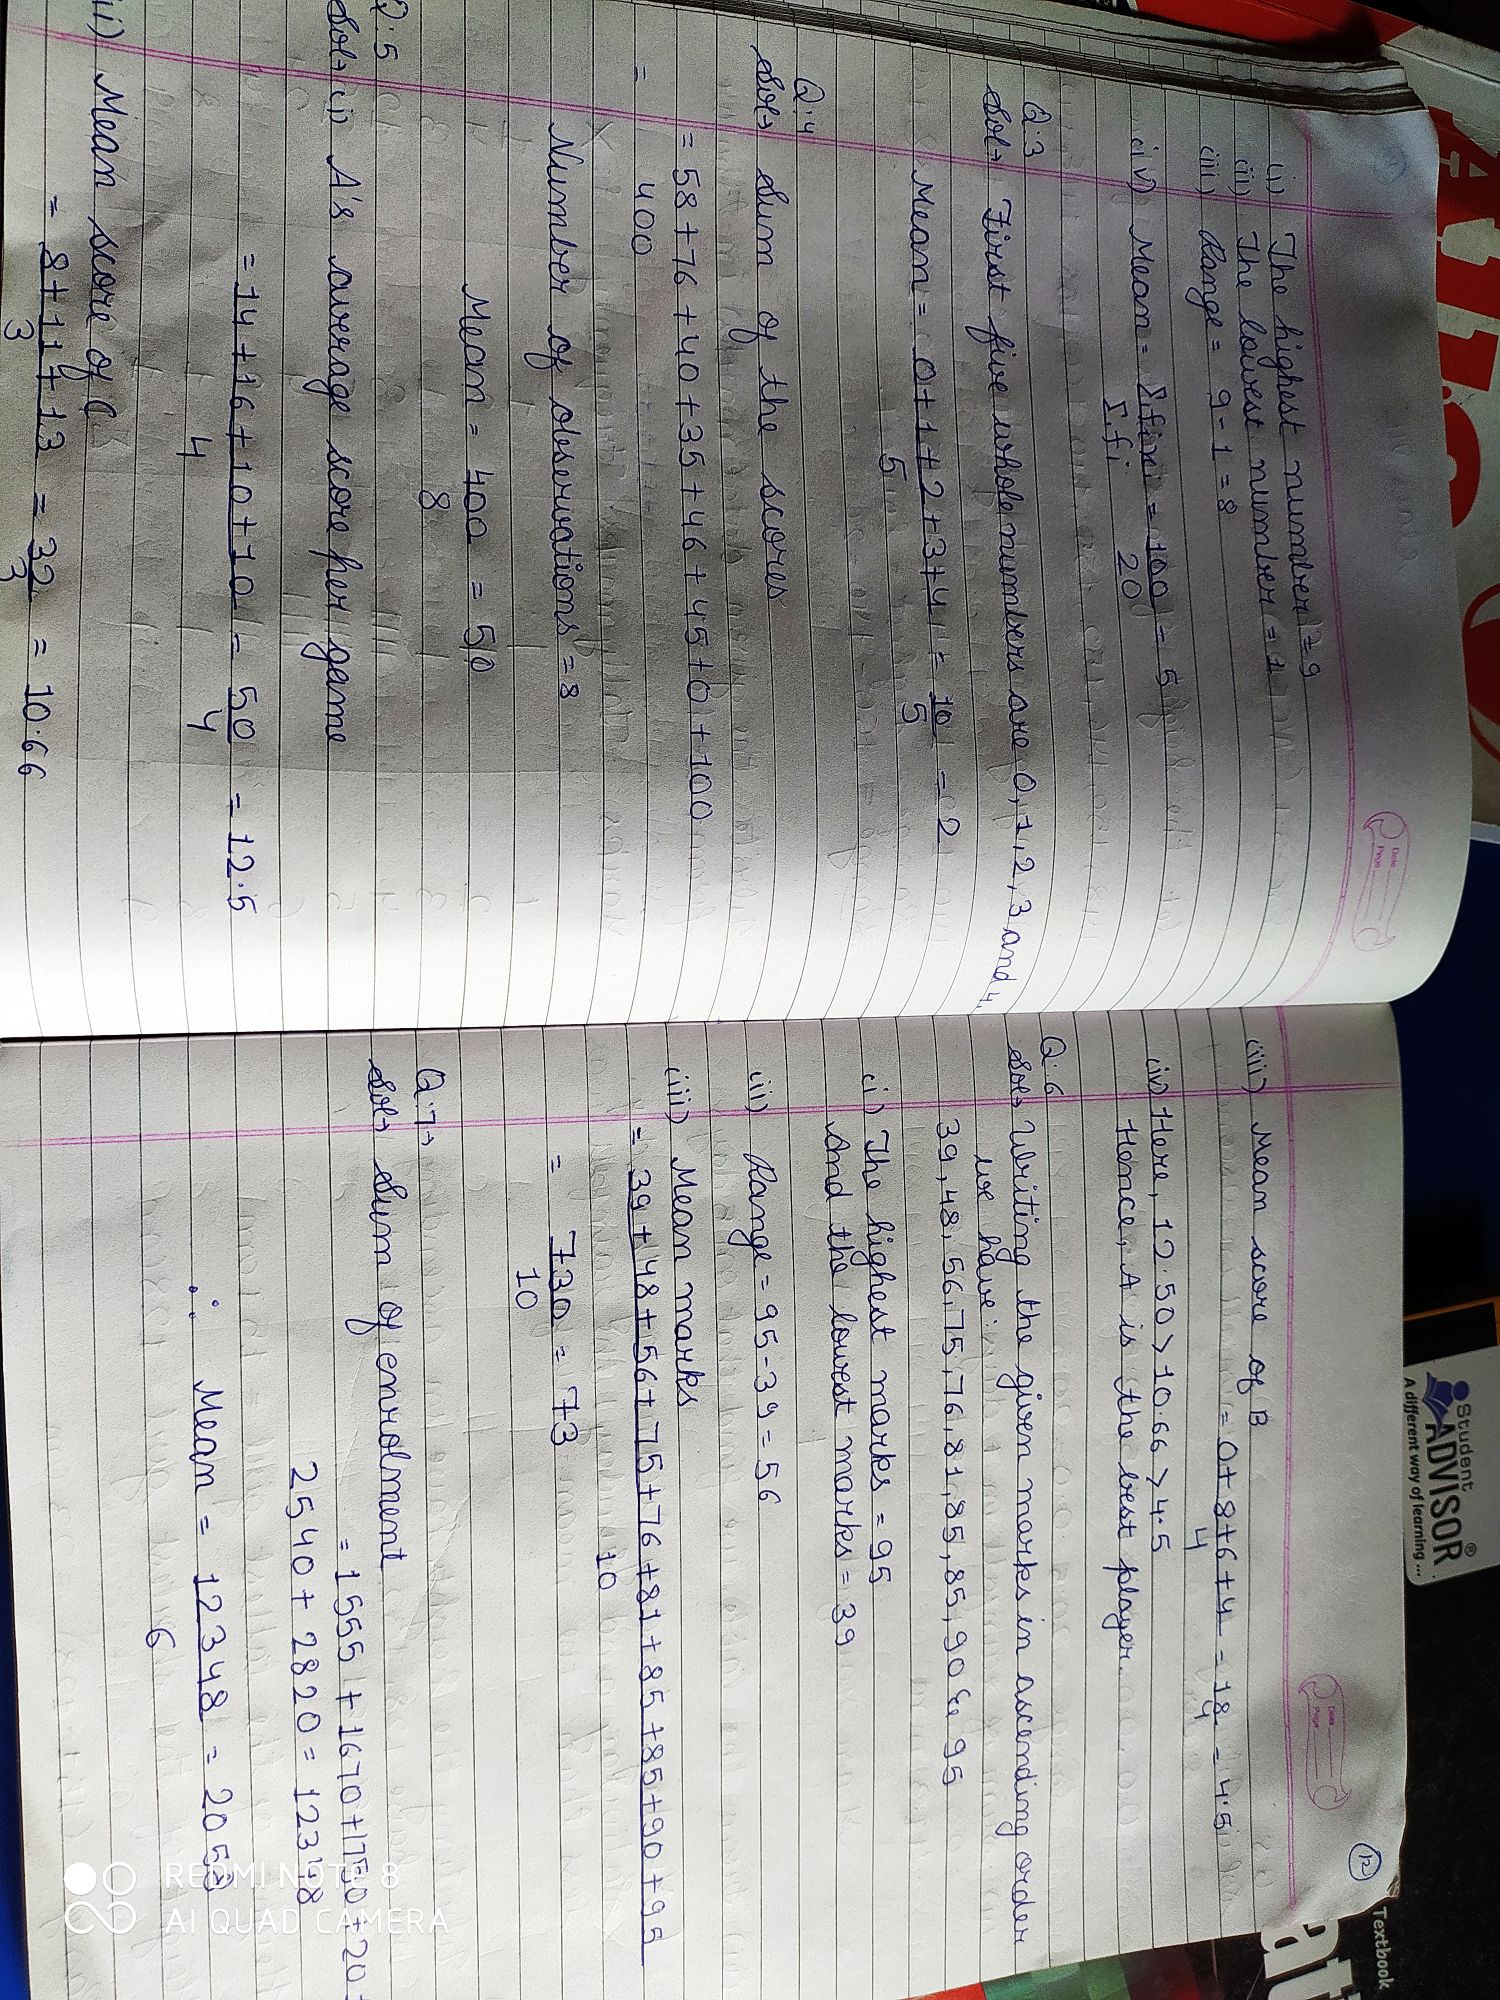 Date
Page
(i) The highest number = 9
(ii) The lowest number = 1
(iii) Range = 9 - 1 = 8
(iv) Mean = Σfixi = 100 = 5
Σfi 20
Q:3
Sol→ First five whole numbers are 0,1,2,3 and 4
Mean = 0+1+2+3+4 = 10 = 2
5 5
Q:4
Sol→ Sum of the scores
= 58 + 76 + 40 + 35 + 46 + 45 + 0 + 100
= 400
Number of observations = 8
Mean = 400 = 50
8
Q:5
Sol→ (i) A's average score per game
= 14 + 16 + 10 + 10 = 50 = 12.5
4 4
ii) Mean score of C
= 8 + 11 + 13 = 32 = 10.66
3 3
Date
Page
12
(iii) Mean score of B
= 0+ 8+6+4 = 18 = 4.5
4 4
(iv) Here, 12.50 > 10.66 > 4.5
Hence, A is the best player.
Q:6
Sol→ Writing the given marks in ascending order
we have:
39, 48, 56, 75, 76, 81, 85, 85, 90 & 95
(i) The highest marks = 95
And the lowest marks = 39
(ii) Range = 95 - 39 = 56
(iii) Mean marks
= 39 + 48 + 56 + 75 + 76 + 81 + 85 + 85 + 90 + 95
10
= 730 = 73
10
Q:7→
Sol→ Sum of enrolment
= 1555 + 1670 + 1750 + 20
2540 + 2820 = 12348
∴ Mean = 12348 = 2058
6
Student
ADVISOR®
A different way of learning ...
Textbook
REDMI NOTE 8
AI QUAD CAMERA